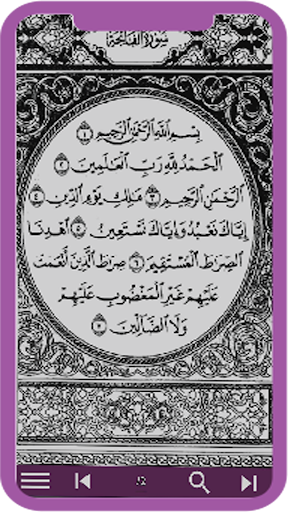 سورة الفاتحة
بسم الله الرحمن الرحيم ١
الحمد لله رب العالمين ٢
الرحمن الرحيم ٣ ملك يوم الدين ٤
إياك نعبد وإياك نستعين ٥ اهدنا
الصراط المستقيم ٦ صراط الذين أنعمت
عليهم غير المغضوب عليهم
ولا الضالين ٧